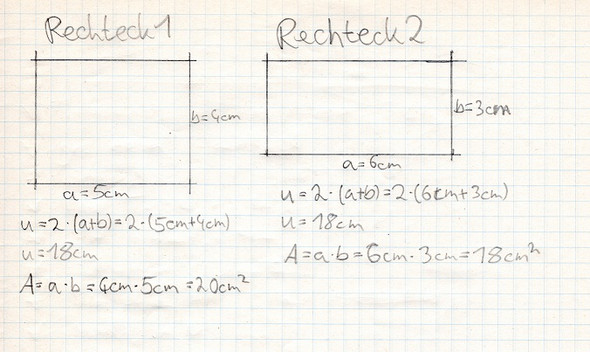 Rechteck 1
b=4cm
a=5cm
u=2·(a+b)=2·(5cm+4cm)
u=18cm
A=a·b=4cm·5cm=20cm²
Rechteck 2
b=3cm
a=6cm
u=2·(a+b)=2·(6cm+3cm)
u=18cm
A=a·b=6cm·3cm=18cm²